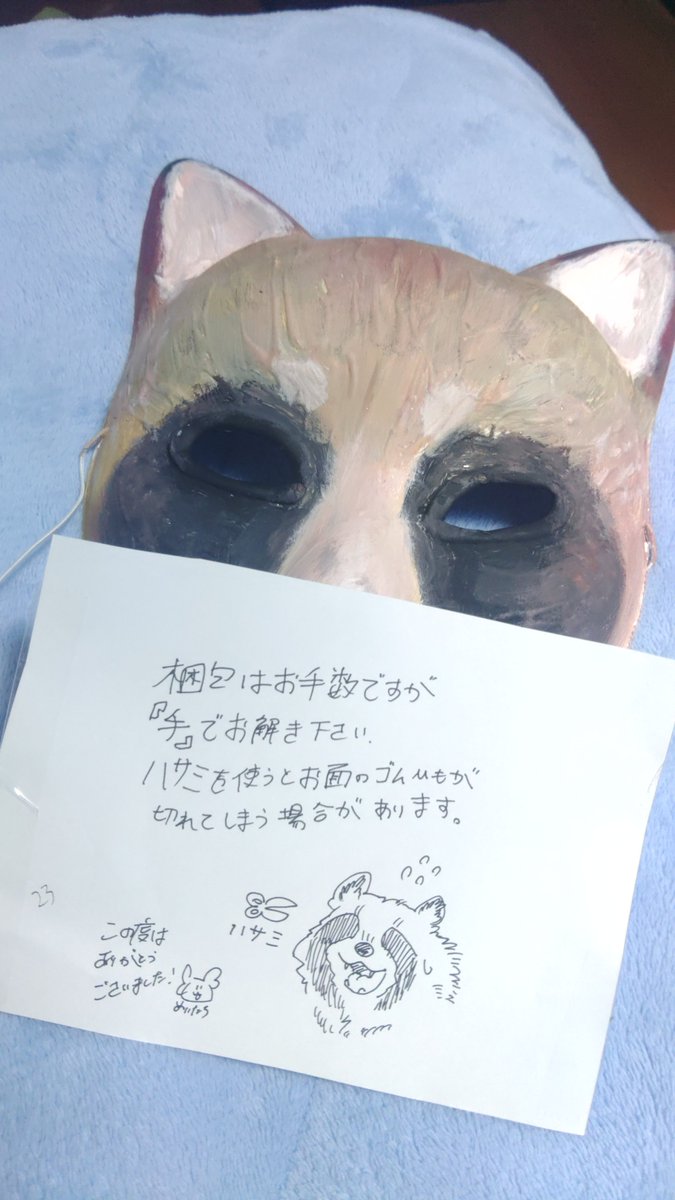 梱包はお手数ですが
『手』でお解き下さい.
ハサミを使うとお面のゴムひもが
切れてしまう場合があります。
23
ハサミ
この度は
ありがとう
ございました!